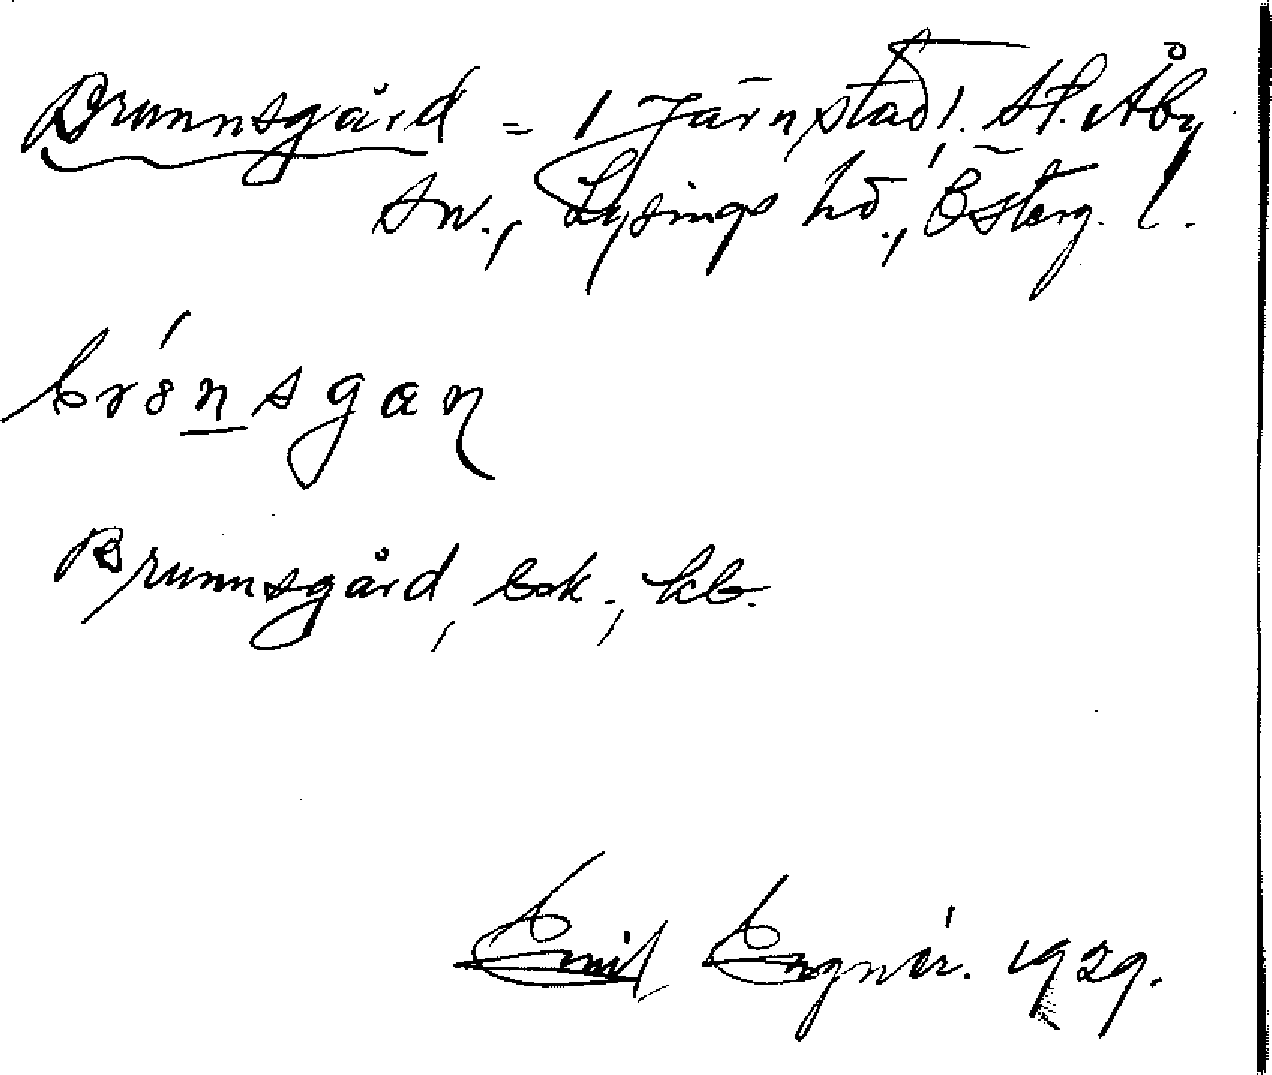 Brunnsgård = i Järnstad, St. Åby
sn., Lysings hd., Österg. l.
brónsgaɳ
Brunnsgård, bsk., kb.
Emil Engnér. 1929.